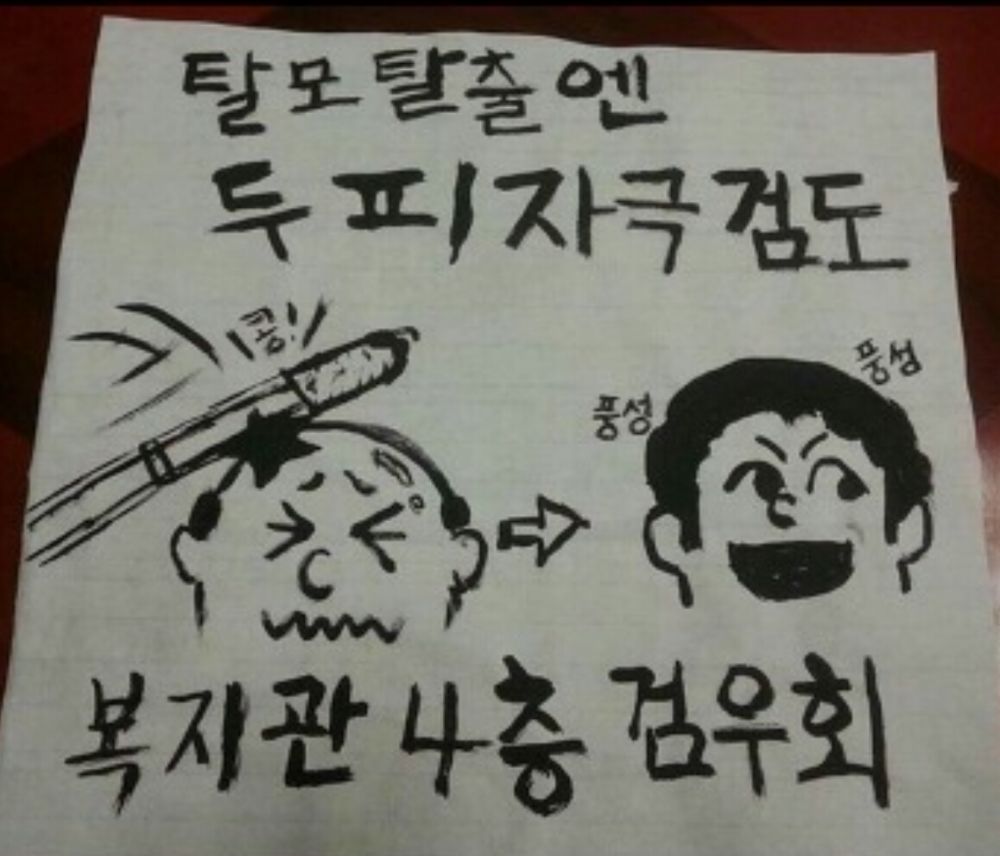 탈모탈출엔
두피자극검도
콩!
풍성
풍성
복지관 4층 검우회